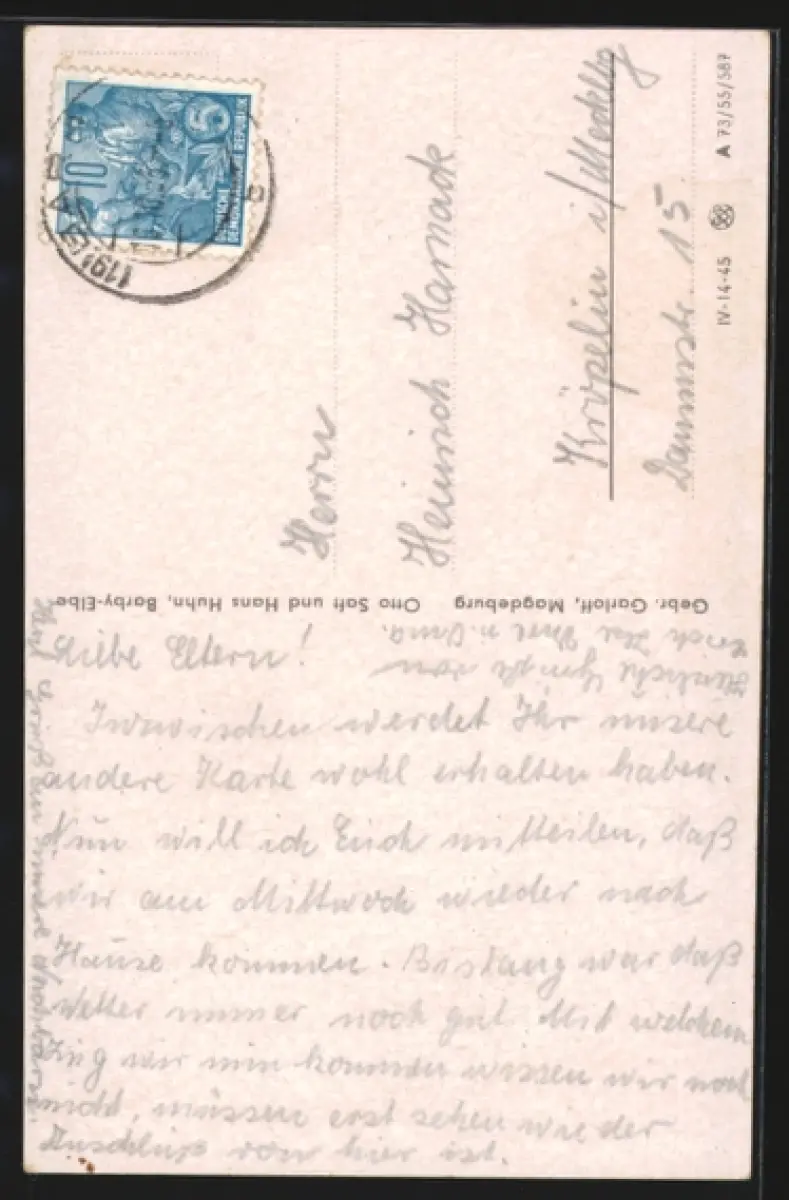 10
5
DEUTSCHE
DEMOKRATISCHE REPUBLIK
BARBY
Herrn
Heinrich Harnack
Kröpelin i/Mecklbg
Dammstr. 15
IV-14-45
A 73/55/587
Gebr. Garloff, Magdeburg Otto Saft und Hans Huhn, Barby-Elbe
Liebe Eltern!
Inzwischen werdet Ihr unsere
andere Karte wohl erhalten haben.
Nun will ich Euch mitteilen, daß
wir am Mittwoch wieder nach
Hause kommen. Bislang war daß
Wetter immer noch gut. Mit welchem
Zug wir nun kommen wissen wir noch
nicht, müssen erst sehen wie der
Anschluß von hier ist.
Herzliche Grüße von